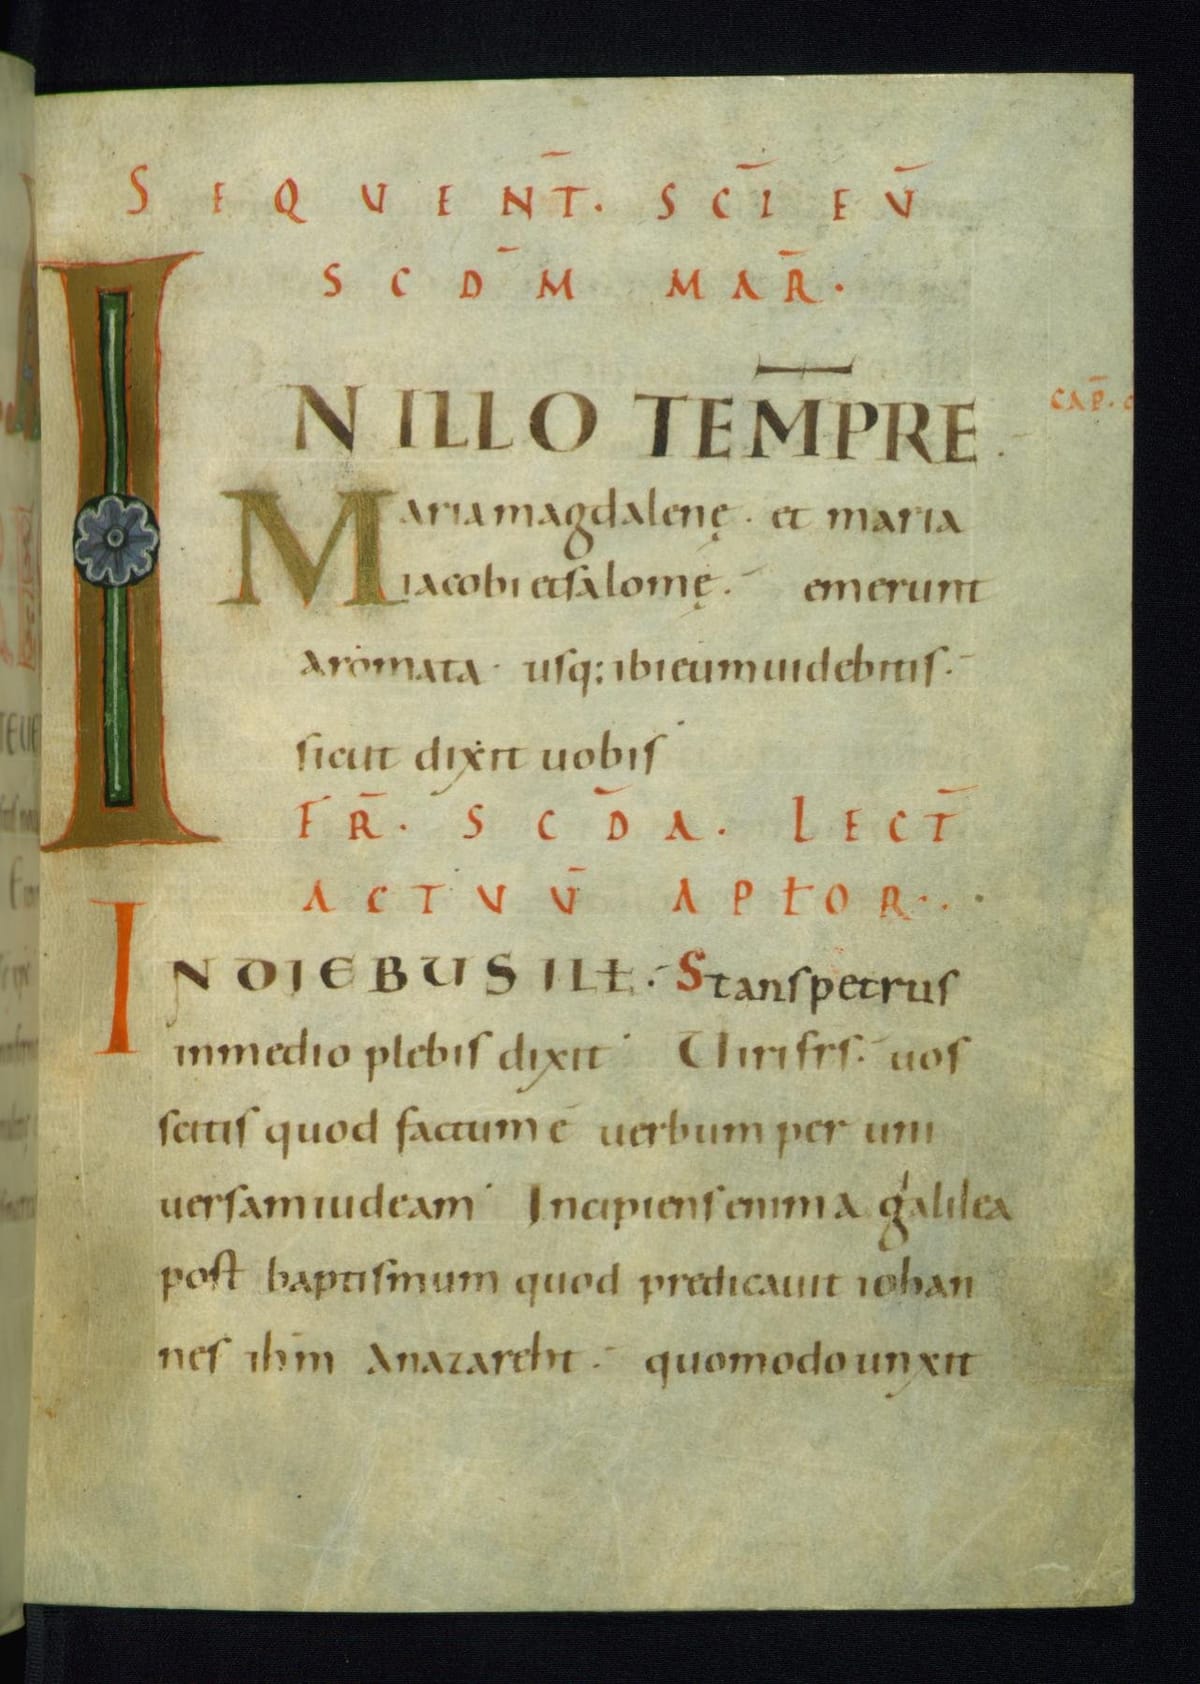 SEQUENT̄. SC̄I EŪ
SCD̄M MAR̄.
CAP̄.
IN ILLO TEM̄PRE.
Maria magdalenę. et maria
iacobi et salomę. emerunt
aromata. usq; ibi eum uidebitis.
sicut dixit uobis
FR̄. SCD̄A. LECT̄
ACTUŪ APŁOR..
IN DIEBUS ILŁ. Stans petrus
in medio plebis dixit Uiri frs. uos
scitis quod factum ē uerbum per uni
uersam iudeam Incipiens enim a galilea
post baptismum quod predicauit iohan
nes ihm̄ A nazareht. quomodo unxit